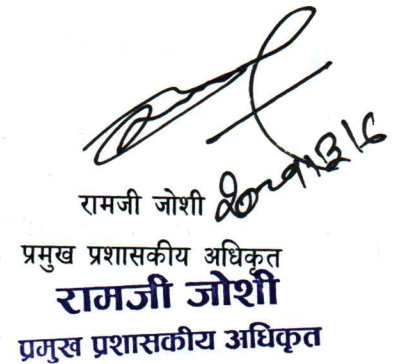 रामजी जोशी
प्रमुख प्रशासकीय अधिकृत
रामजी जोशी
प्रमुख प्रशासकीय अधिकृत